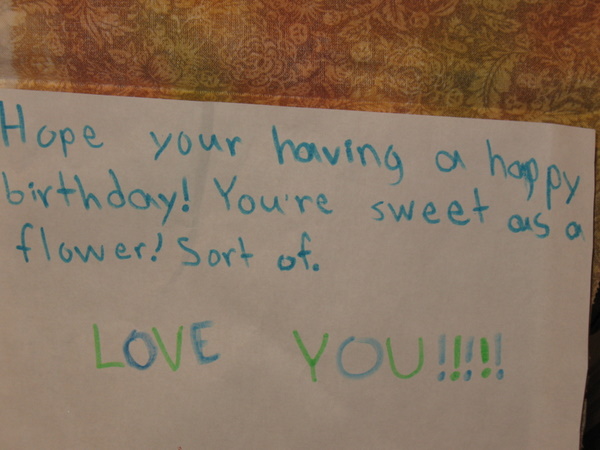 Hope your having a happy
birthday! You're sweet as a
flower! Sort of.
LOVE YOU!!!!!